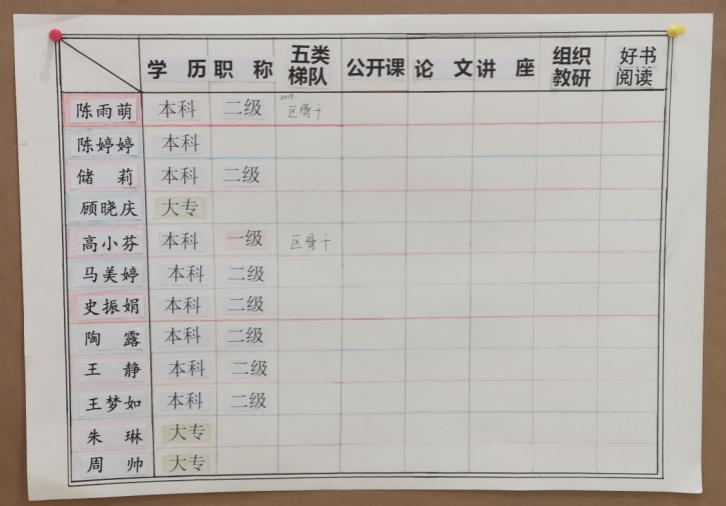 学 历 职 称 五类梯队 公开课 论 文 讲 座 组织教研 好书阅读
陈雨萌 本科 二级 2019. 区骨干
陈婷婷 本科
储 莉 本科 二级
顾晓庆 大专
高小芬 本科 一级 区骨干
马美婷 本科 二级
史振娟 本科 二级
陶 露 本科 二级
王 静 本科 二级
王梦如 本科 二级
朱 琳 大专
周 帅 大专